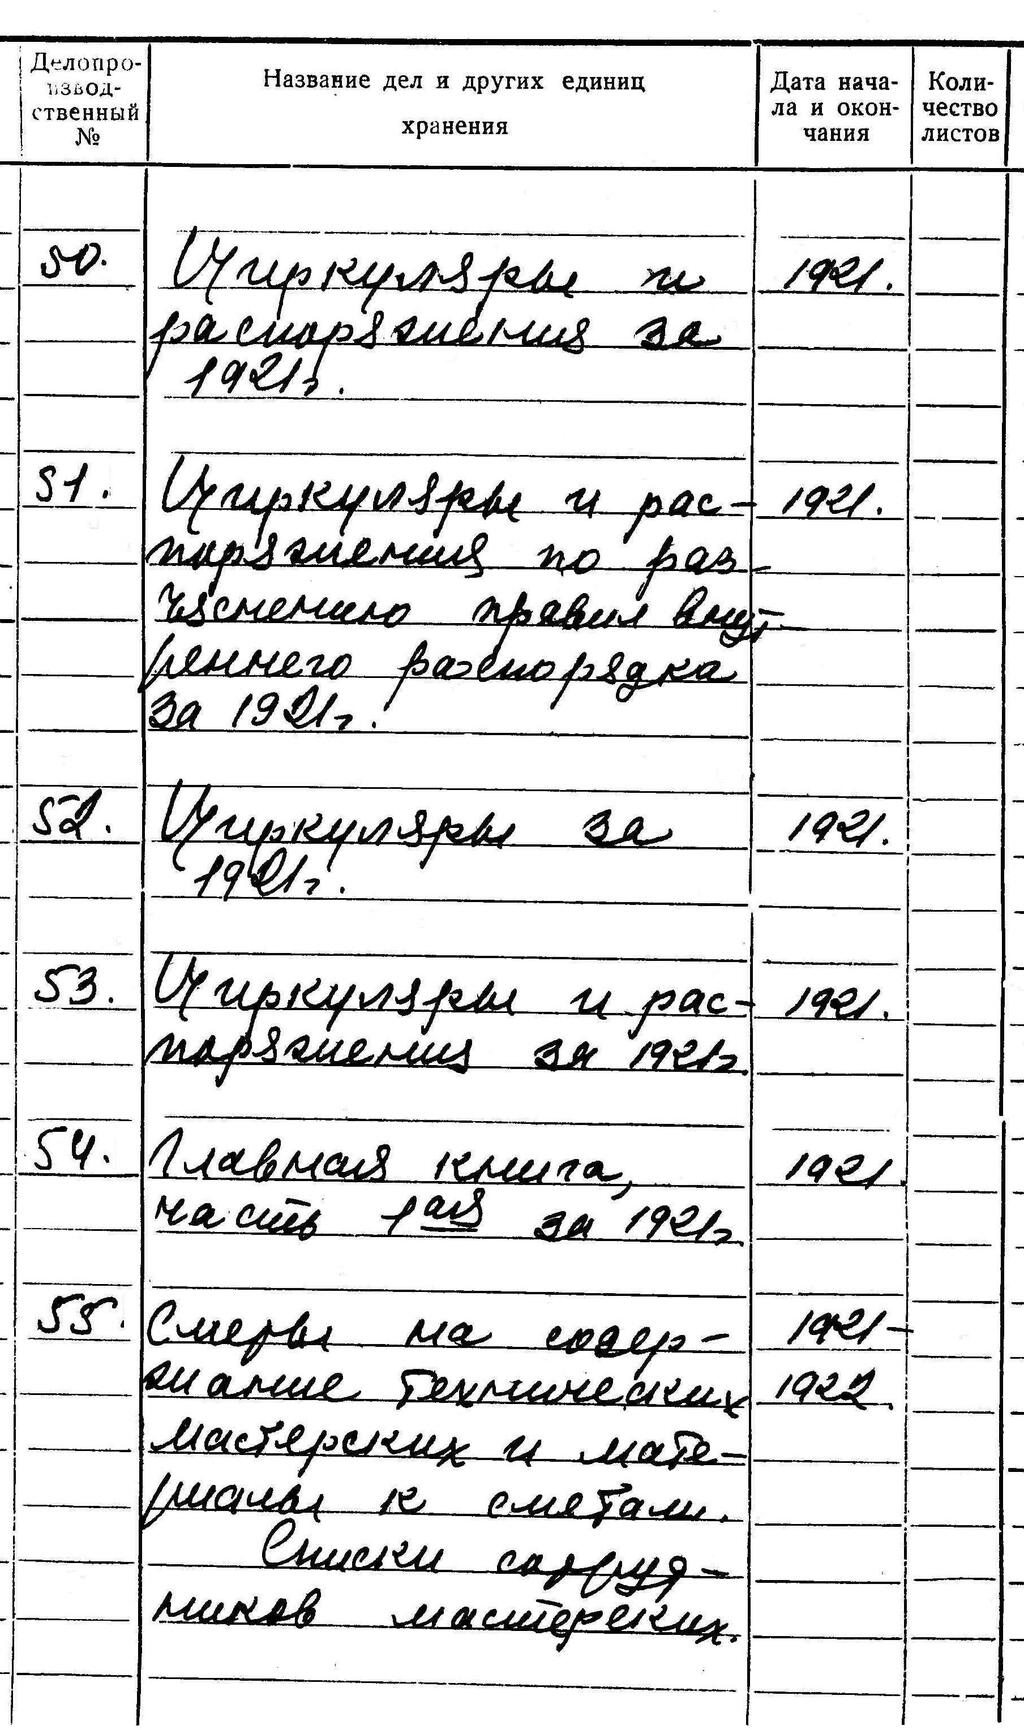 Делопро-
извод-
ственный
№
Название дел и других единиц
хранения
Дата нача-
ла и окон-
чания
Коли-
чество
листов
50. Циркуляры и 1921.
распоряжения за
1921г.
51. Циркуляры и рас- 1921.
поряжения по раз-
ъяснению правил внут-
реннего распорядка
за 1921г.
52. Циркуляры за 1921.
1921г.
53. Циркуляры и рас- 1921.
поряжения за 1921г.
54. Главная книга, 1921.
часть 1ая за 1921г.
55. Сметы на содер- 1921-
жание технических 1922.
мастерских и мате-
риалы к сметам.
Списки сотруд-
ников мастерских.